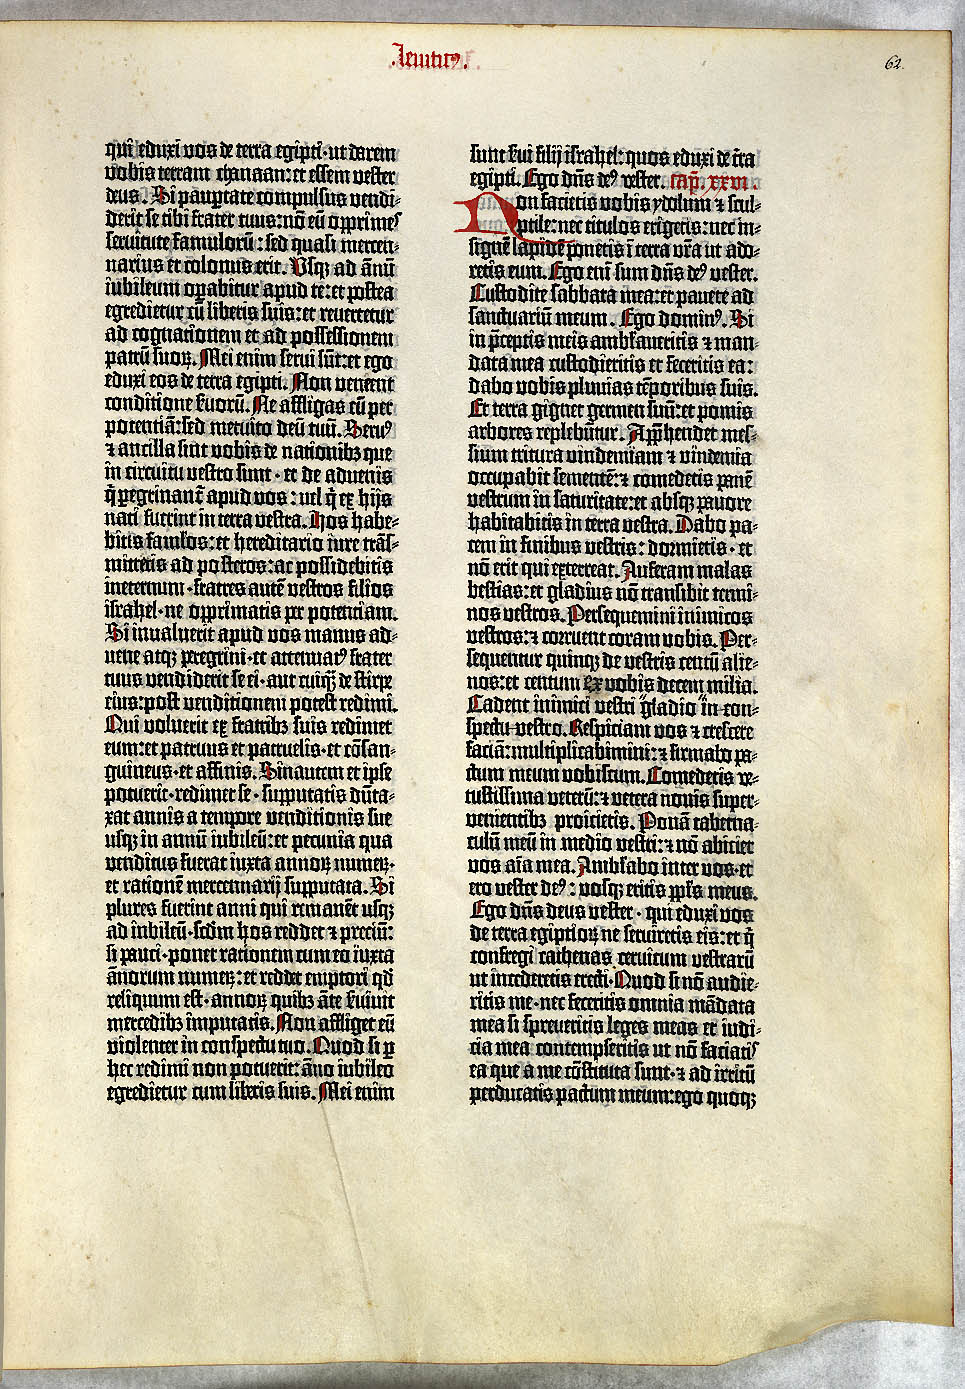 .leuiticꝰ.
62.
qui eduxi vos de terra egipti·ut darem
vobis terram chanaan:et essem vester
deus. Si paupertate compulsus vendi-
derit se tibi frater tuus:nō eū opprimeˢ
servitute famulorū:sed quasi mercen-
narius et colonus erit. Usqꝫ ad ānū
iubileum oꝑabitur apud te:et postea
egredietur cū liberis suis:et revertetur
ad cognationem et ad possessionem
patrū suoꝝ. Mei enim servi sūt:et ego
eduxi eos de terra egipti. Non veneent
conditione ẜvorū. Ne affligas eū per
potentiā:sed metuito deū tuū. Servꝰ
⁊ ancilla sint vobis de nationibꝫ que
in circuitu vestro sunt·et de advenis
q̄ ꝑegrinant̄ apud vos:vel q̄ ex hijs
nati fuerint in terra vestra. Hos habe-
bitis famlos:et hereditario iure trāſ-
mittetis ad posteros:ac possidebitis
ineternum·fratres autē vestros filios
israhel·ne opprimatis per potentiam.
Si invaluerit apud vos manus ad-
vene atqꝫ peregrini·et attenuatꝰ frater
tuus vendiderit se ei·aut cuiqꝫ̄ de stirpe
eius:post venditionem potest redimi.
Qui voluerit ex fratribꝫ suis redimet
eum:et patruus et patruelis·et cōsan-
guineus·et affinis. Sinautem et ipse
potuerit·redimet se·supputatis dūta-
xat annis a tempore venditionis sue
usqꝫ in annū iubileū:et pecunia qua
venditus fuerat iuxta annoꝝ numeꝝ·
et rationē mercennarij supputata. Si
plures fuerint anni qui remanēt usqꝫ
ad iubileū·scd̄m hos reddet ⁊ preciū:
si pauci·ponet rationem cum eo iuxta
ānorum numeꝝ:et reddet emptori qd̄
reliquum est·annoꝝ quibꝫ āte ẜvivit
mercedibꝫ imputatis. Non affliget eū
violenter in conspectu tuo. Quod si ꝑ
hec redimi non potuerit:āno iubileo
egredietur cum liberis suis. Mei enim
sunt ẜvi filij israhel:quos eduxi de t̄ra
egipti. Ego dn̄s deꝰ vester. Cap̄. xxvi.
Non facietis vobis ydolum ⁊ scul-
ptile:nec titulos erigetis:nec in-
signē lapidē ponetis ī terra vr̄a ut ado-
retis eum. Ego eni sum dn̄s deꝰ vester.
Custodite sabbata mea:et pavete ad
sanctuariū meum. Ego dominꝰ. Si
in p̄ceptis meis ambĺaveritis ⁊ man-
data mea custodieritis et feceritis ea:
dabo vobis pluvias tēporibus suis.
Et terra gignet germen suū:et pomis
arbores replebūtur. Apprehendet mes-
sium tritura vindemiam ⁊ vindemia
occupabit sementē:⁊ comedetis panē
vestrum in saturitate:et absqꝫ pavore
habitabitis in terra vestra. Dabo pa-
cem in finibus vestris:dormietis·et
nō erit qui exterreat. Auferam malas
bestias:et gladius nō transibit termi-
nos vestros. Persequemini inimicos
vestros:⁊ corruent coram vobis. Per-
sequentur quinqꝫ de vestris centū alie-
nos:et centum ex vobis decem milia.
Cadent inimici vestri gladio in con-
spectu vestro. Respiciam vos ⁊ crescere
faciā:multiplicabimini:⁊ firmabo pa-
ctum meum vobiscum. Comedetis ve-
tustissima veterū:⁊ vetera novis super-
venientibꝫ proicietis. Ponā taberna-
culū meū in medio vestri:⁊ nō abiciet
vos aīa mea. Ambĺabo inter vos·et
ero vester deꝰ:vosqꝫ eritis ppĺs meus.
Ego dn̄s deus vester·qui eduxi vos
de terra egiptioꝝ ne serviretis eis:et q̄
confregi cathenas cervicum vestrarū
ut incederetis erecti·Quod si nō audie-
ritis me·nec feceritis omnia mādata
mea si spreveritis leges meas et iudi-
cia mea contempseritis ut nō faciatiˢ
ea que a me cōstituta sunt·⁊ ad irritū
perducatis pactum meum:ego quoqꝫ